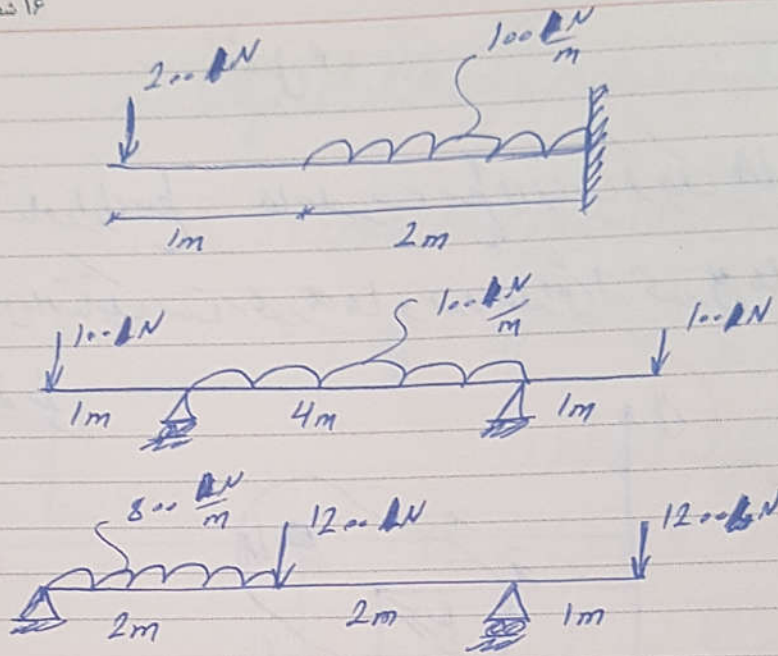 ۱۶ شن
200 kN
100 kN/m
1m 2m
100 kN
100 kN/m
100 kN
1m 4m 1m
800 kN/m
1200 kN
1200 kN
2m 2m 1m